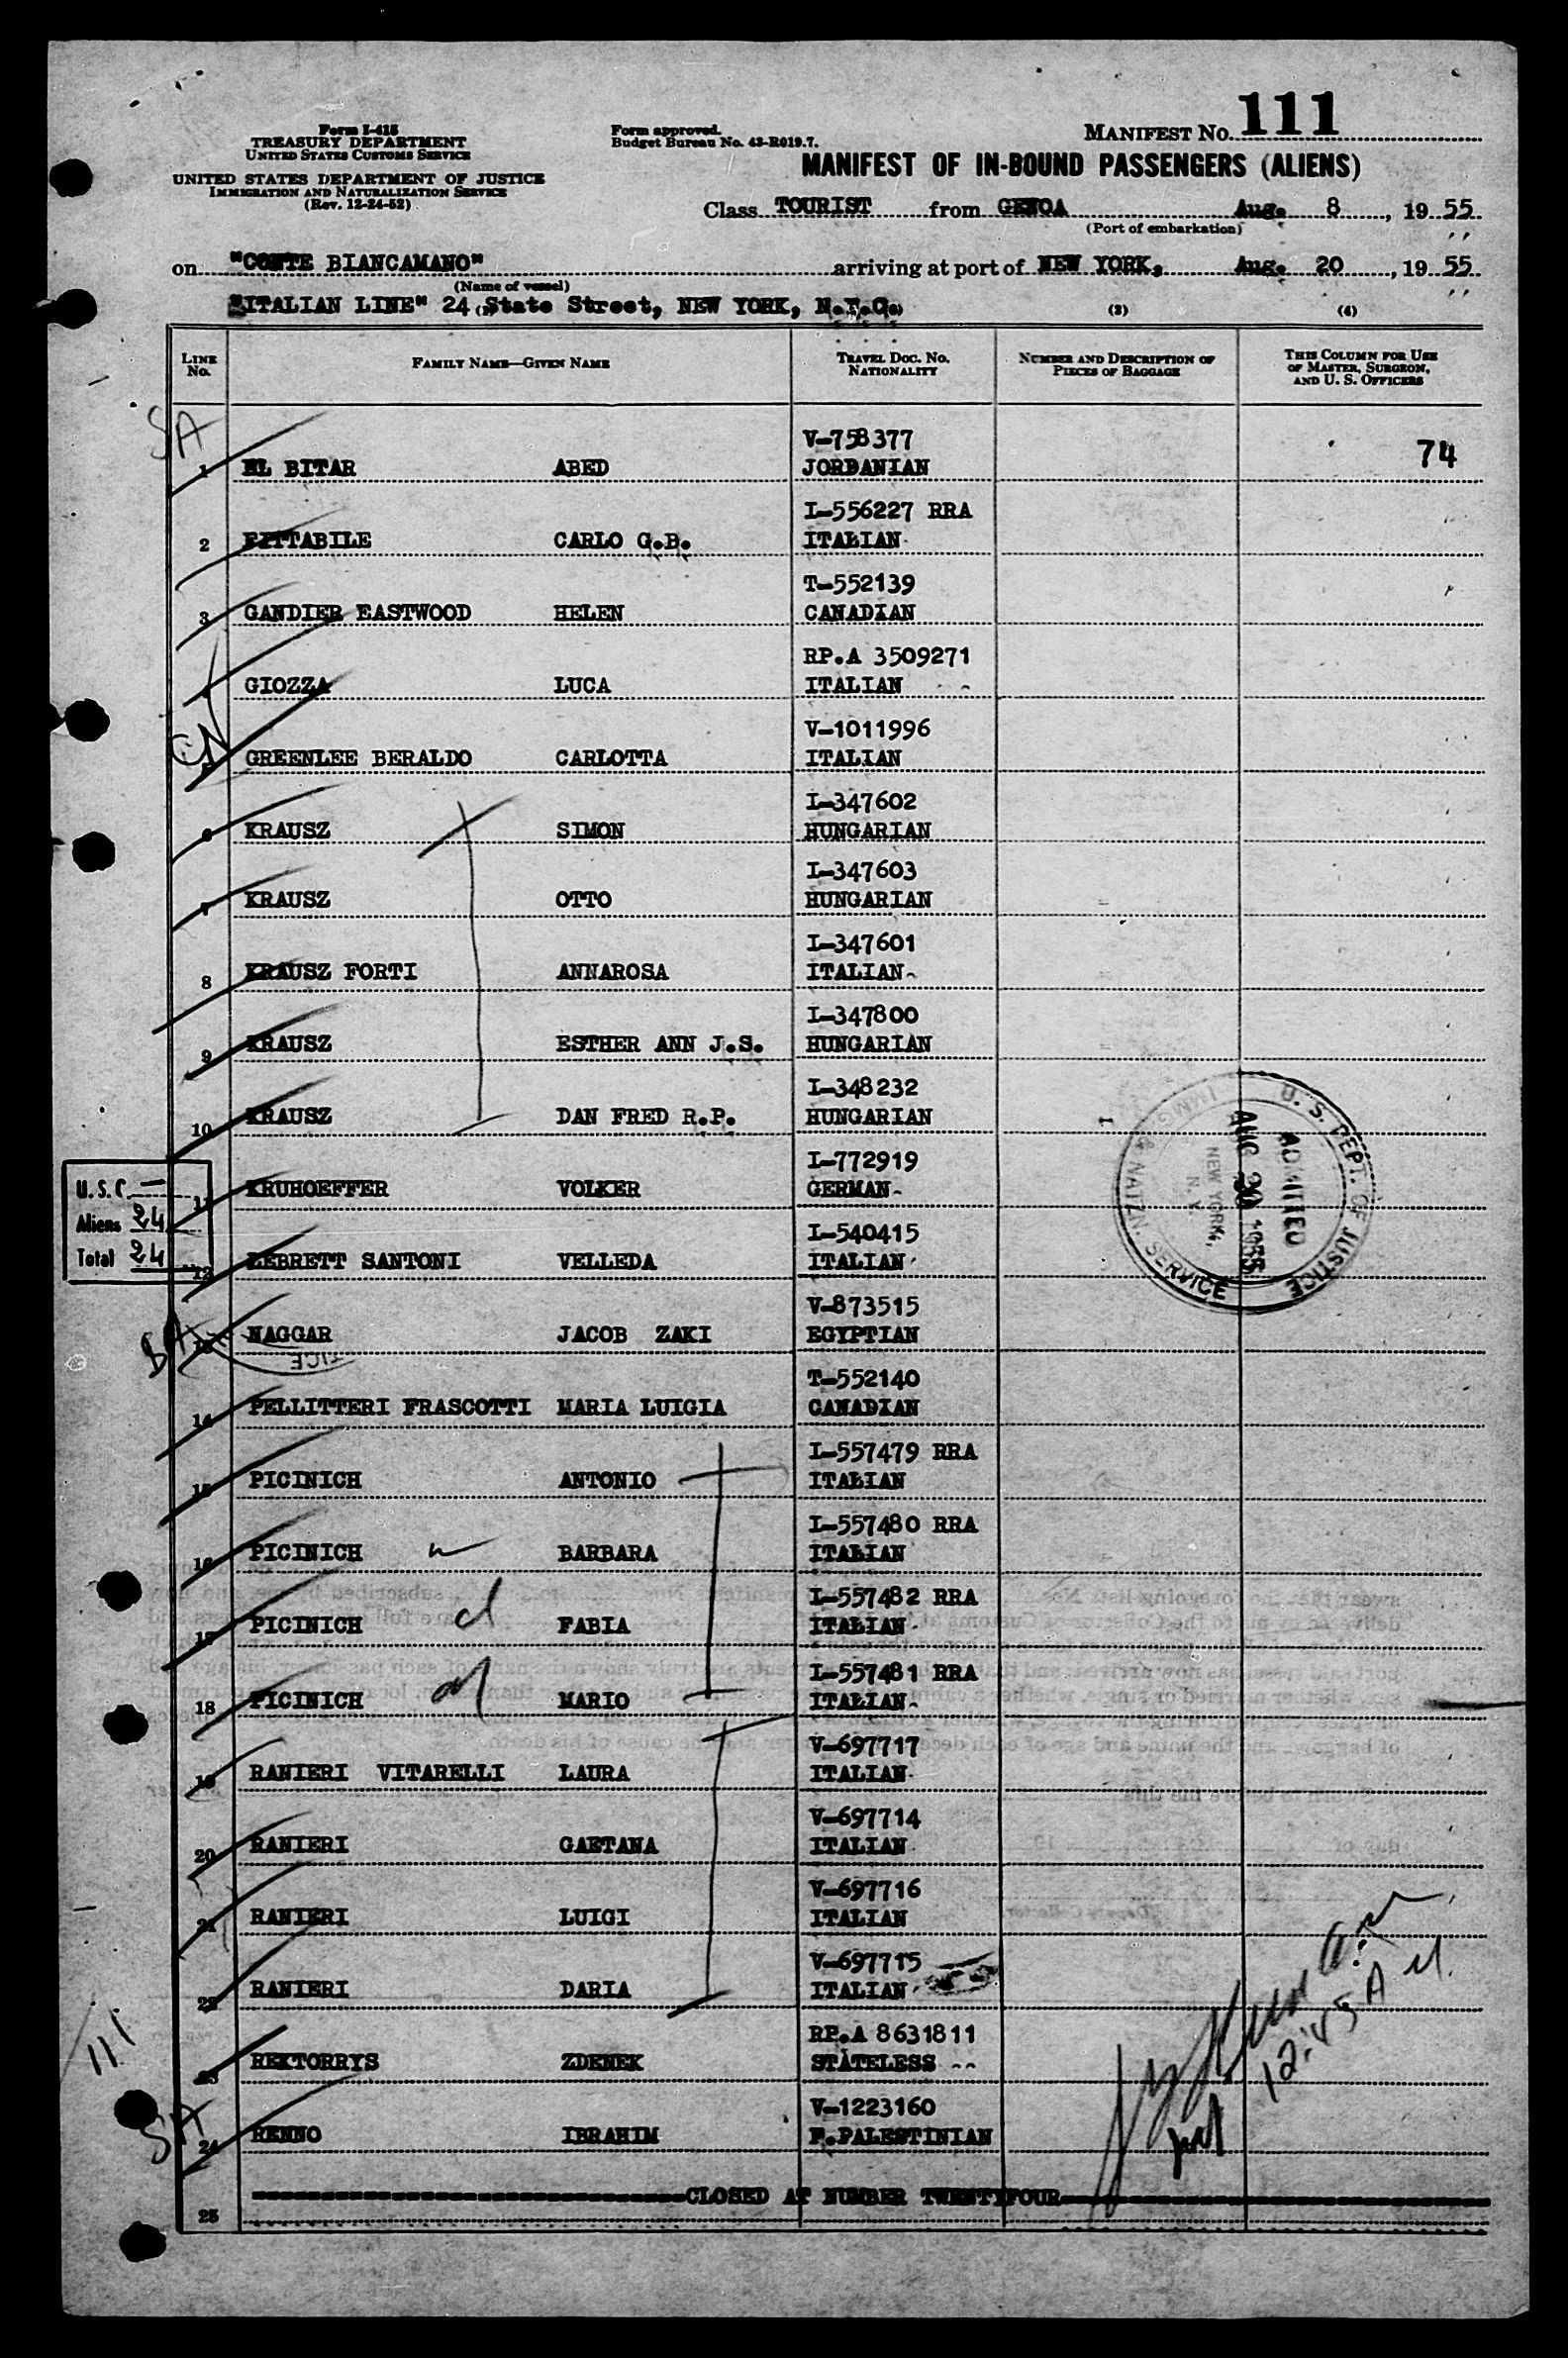 Form I-418
TREASURY DEPARTMENT
UNITED STATES CUSTOMS SERVICE
UNITED STATES DEPARTMENT OF JUSTICE
IMMIGRATION AND NATURALIZATION SERVICE
(Rev. 12-24-52)
Form approved.
Budget Bureau No. 43-R019.7.
MANIFEST NO. 111
MANIFEST OF IN-BOUND PASSENGERS (ALIENS)
Class TOURIST from GENOA Aug. 8, 19 55
(Port of embarkation)
on "CONTE BIANCAMANO" arriving at port of NEW YORK, Aug. 20, 19 55
(Name of vessel)
"ITALIAN LINE" 24, State Street, NEW YORK, N.Y.C. (3) (4)
LINE NO. FAMILY NAME—GIVEN NAME TRAVEL DOC. NO. NATIONALITY NUMBER AND DESCRIPTION OF PIECES OF BAGGAGE THIS COLUMN FOR USE OF MASTER, SURGEON, AND U. S. OFFICERS
SA
V-758377
1 EL BITAR ABED JORDANIAN 74
I-556227 RRA
2 FITTABILE CARLO G.B. ITALIAN
T-552139
3 GANDIER EASTWOOD HELEN CANADIAN
RP.A 3509271
4 GIOZZA LUCA ITALIAN
V-1011996
5 GREENLEE BERALDO CARLOTTA ITALIAN
I-347602
6 KRAUSZ SIMON HUNGARIAN
I-347603
7 KRAUSZ OTTO HUNGARIAN
I-347601
8 KRAUSZ FORTI ANNAROSA ITALIAN
I-347800
9 KRAUSZ ESTHER ANN J.S. HUNGARIAN
I-348232
10 KRAUSZ DAN FRED R.P. HUNGARIAN
I-772919
11 KRUHOEFFER VOLKER GERMAN
I-540415
12 LEBRETT SANTONI VELLEDA ITALIAN
V-873515
13 NAGGAR JACOB ZAKI EGYPTIAN
T-552140
14 PELLITTERI FRASCOTTI MARIA LUIGIA CANADIAN
I-557479 RRA
15 PICINICH ANTONIO ITALIAN
I-557480 RRA
16 PICINICH w BARBARA ITALIAN
I-557482 RRA
17 PICINICH d FABIA ITALIAN
I-557481 RRA
18 PICINICH MARIO ITALIAN
V-697717
19 RANIERI VITARELLI LAURA ITALIAN
V-697714
20 RANIERI GAETANA ITALIAN
V-697716
21 RANIERI LUIGI ITALIAN
V-697715
22 RANIERI DARIA ITALIAN
RP.A 8631811
23 REKTORRYS ZDENEK STATELESS
V-1223160
24 RENNO IBRAHIM P.PALESTINIAN
25 CLOSED AT NUMBER TWENTYFOUR
U.S.C. —
Aliens 24
Total 24
U. S. DEPT. OF JUSTICE
IMMIG. & NATZN. SERVICE
ADMITTED
AUG 20 1955
NEW YORK, N. Y.
SA
111
SA
12:45 A M.